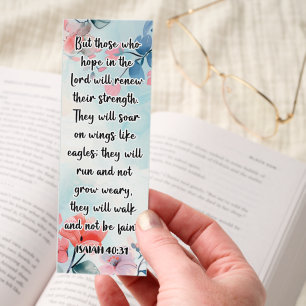 But those who
hope in the
Lord will renew
their strength.
They will soar
on wings like
eagles; they will
run and not
grow weary,
they will walk
and not be faint
ISAIAH 40:31